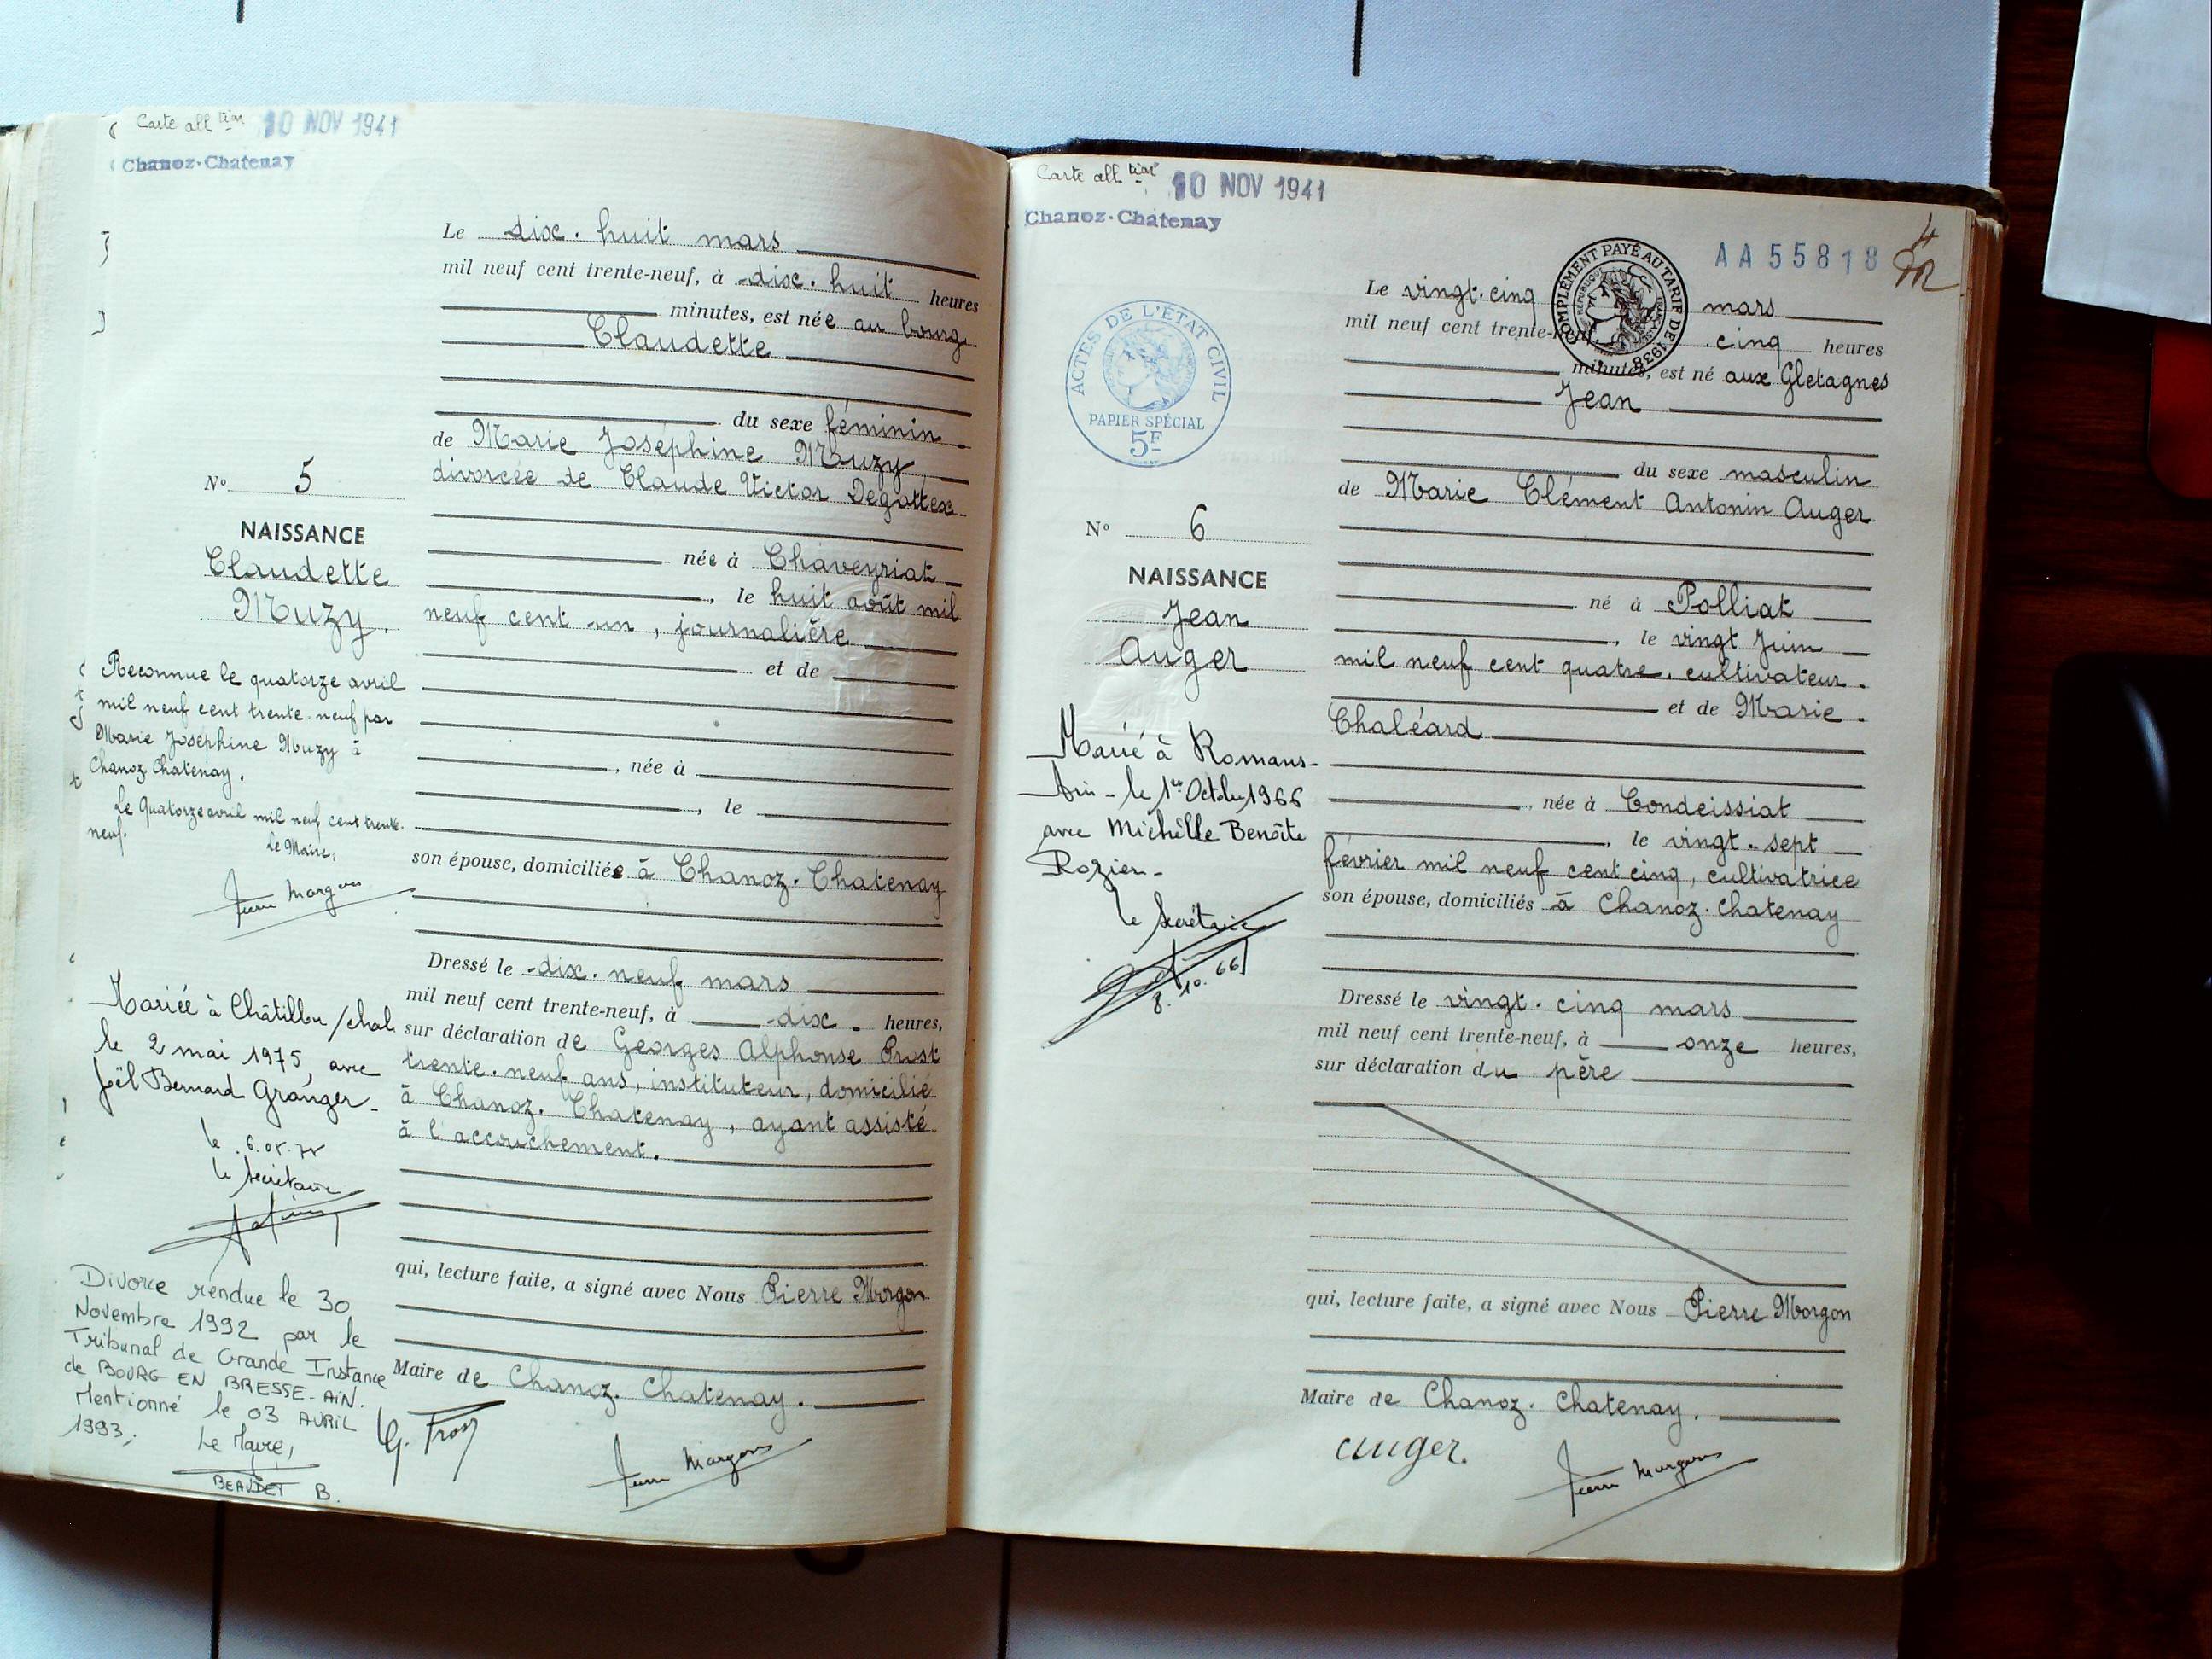 Carte all tion 10 NOV 1941
Chanoz-Chatenay
Le dix-huit mars
mil neuf cent trente-neuf, à dix-huit heures
minutes, est née au bourg
Claudette
du sexe féminin
de Marie Joséphine Muzy
divorcée de Claude Victor Degottex
née à Chaveyriat
, le huit août mil
neuf cent un, journalière
et de
, née à
, le
son épouse, domiciliée à Chanoz-Chatenay
Dressé le dix-neuf mars
mil neuf cent trente-neuf, à dix heures,
sur déclaration de Georges Alphonse Prost
trente-neuf ans, instituteur, domicilié
à Chanoz-Chatenay, ayant assisté
à l'accouchement.
qui, lecture faite, a signé avec Nous Pierre Morgon
Maire de Chanoz-Chatenay.
G. Prost
Pierre Morgon
No 5
NAISSANCE
Claudette
Muzy.
Reconnue le quatorze avril
mil neuf cent trente-neuf par
Marie Joséphine Muzy à
Chanoz Chatenay.
Le Quatorze avril mil neuf cent trente-
neuf.
Le Maire,
Pierre Morgon
Mariée à Châtillon/chal
le 2 mai 1975, avec
Joël Bernard Granger-
le 6.05.75
le secrétaire
Divorce rendue le 30
Novembre 1992 par le
Tribunal de Grande Instance
de BOURG EN BRESSE-AIN.
Mentionné le 03 AVRIL
1993,
Le Maire,
BEAUDET B.
Carte all tion 10 NOV 1941
Chanoz-Chatenay
AA55818
4
ACTES DE L'ÉTAT CIVIL
PAPIER SPÉCIAL
5F
COMPLÉMENT PAYÉ AU TARIF DE 1938
RÉPUBLIQUE FRANÇAISE
Le vingt-cinq mars
mil neuf cent trente-neuf, cinq heures
minutes, est né aux Gletagnes
Jean
du sexe masculin
de Marie Clément Antonin Auger
né à Polliat
, le vingt Juin
mil neuf cent quatre, cultivateur.
et de Marie
Chaléard
, née à Condeissiat
, le vingt-sept
février mil neuf cent cinq, cultivatrice
son épouse, domiciliés à Chanoz-Chatenay
Dressé le vingt-cinq mars
mil neuf cent trente-neuf, à onze heures,
sur déclaration du père
qui, lecture faite, a signé avec Nous Pierre Morgon
Maire de Chanoz-Chatenay.
auger.
Pierre Morgon
No 6
NAISSANCE
Jean
Auger
Marié à Romans-
Ain - le 1er Octobre 1966
avec Michèlle Benoîte
Rozier-
le Secrétaire
8.10.66